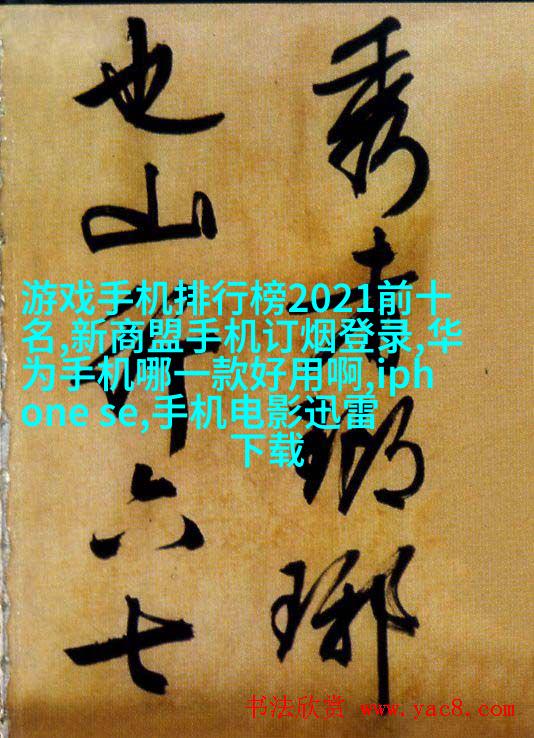 秀者瑯琊
也山行六七
游戏手机排行榜2021前十
名,新商盟手机订烟登录,华
为手机哪一款好用啊,iph
one se,手机电影迅雷
下载
书法欣赏 www.yac8.com